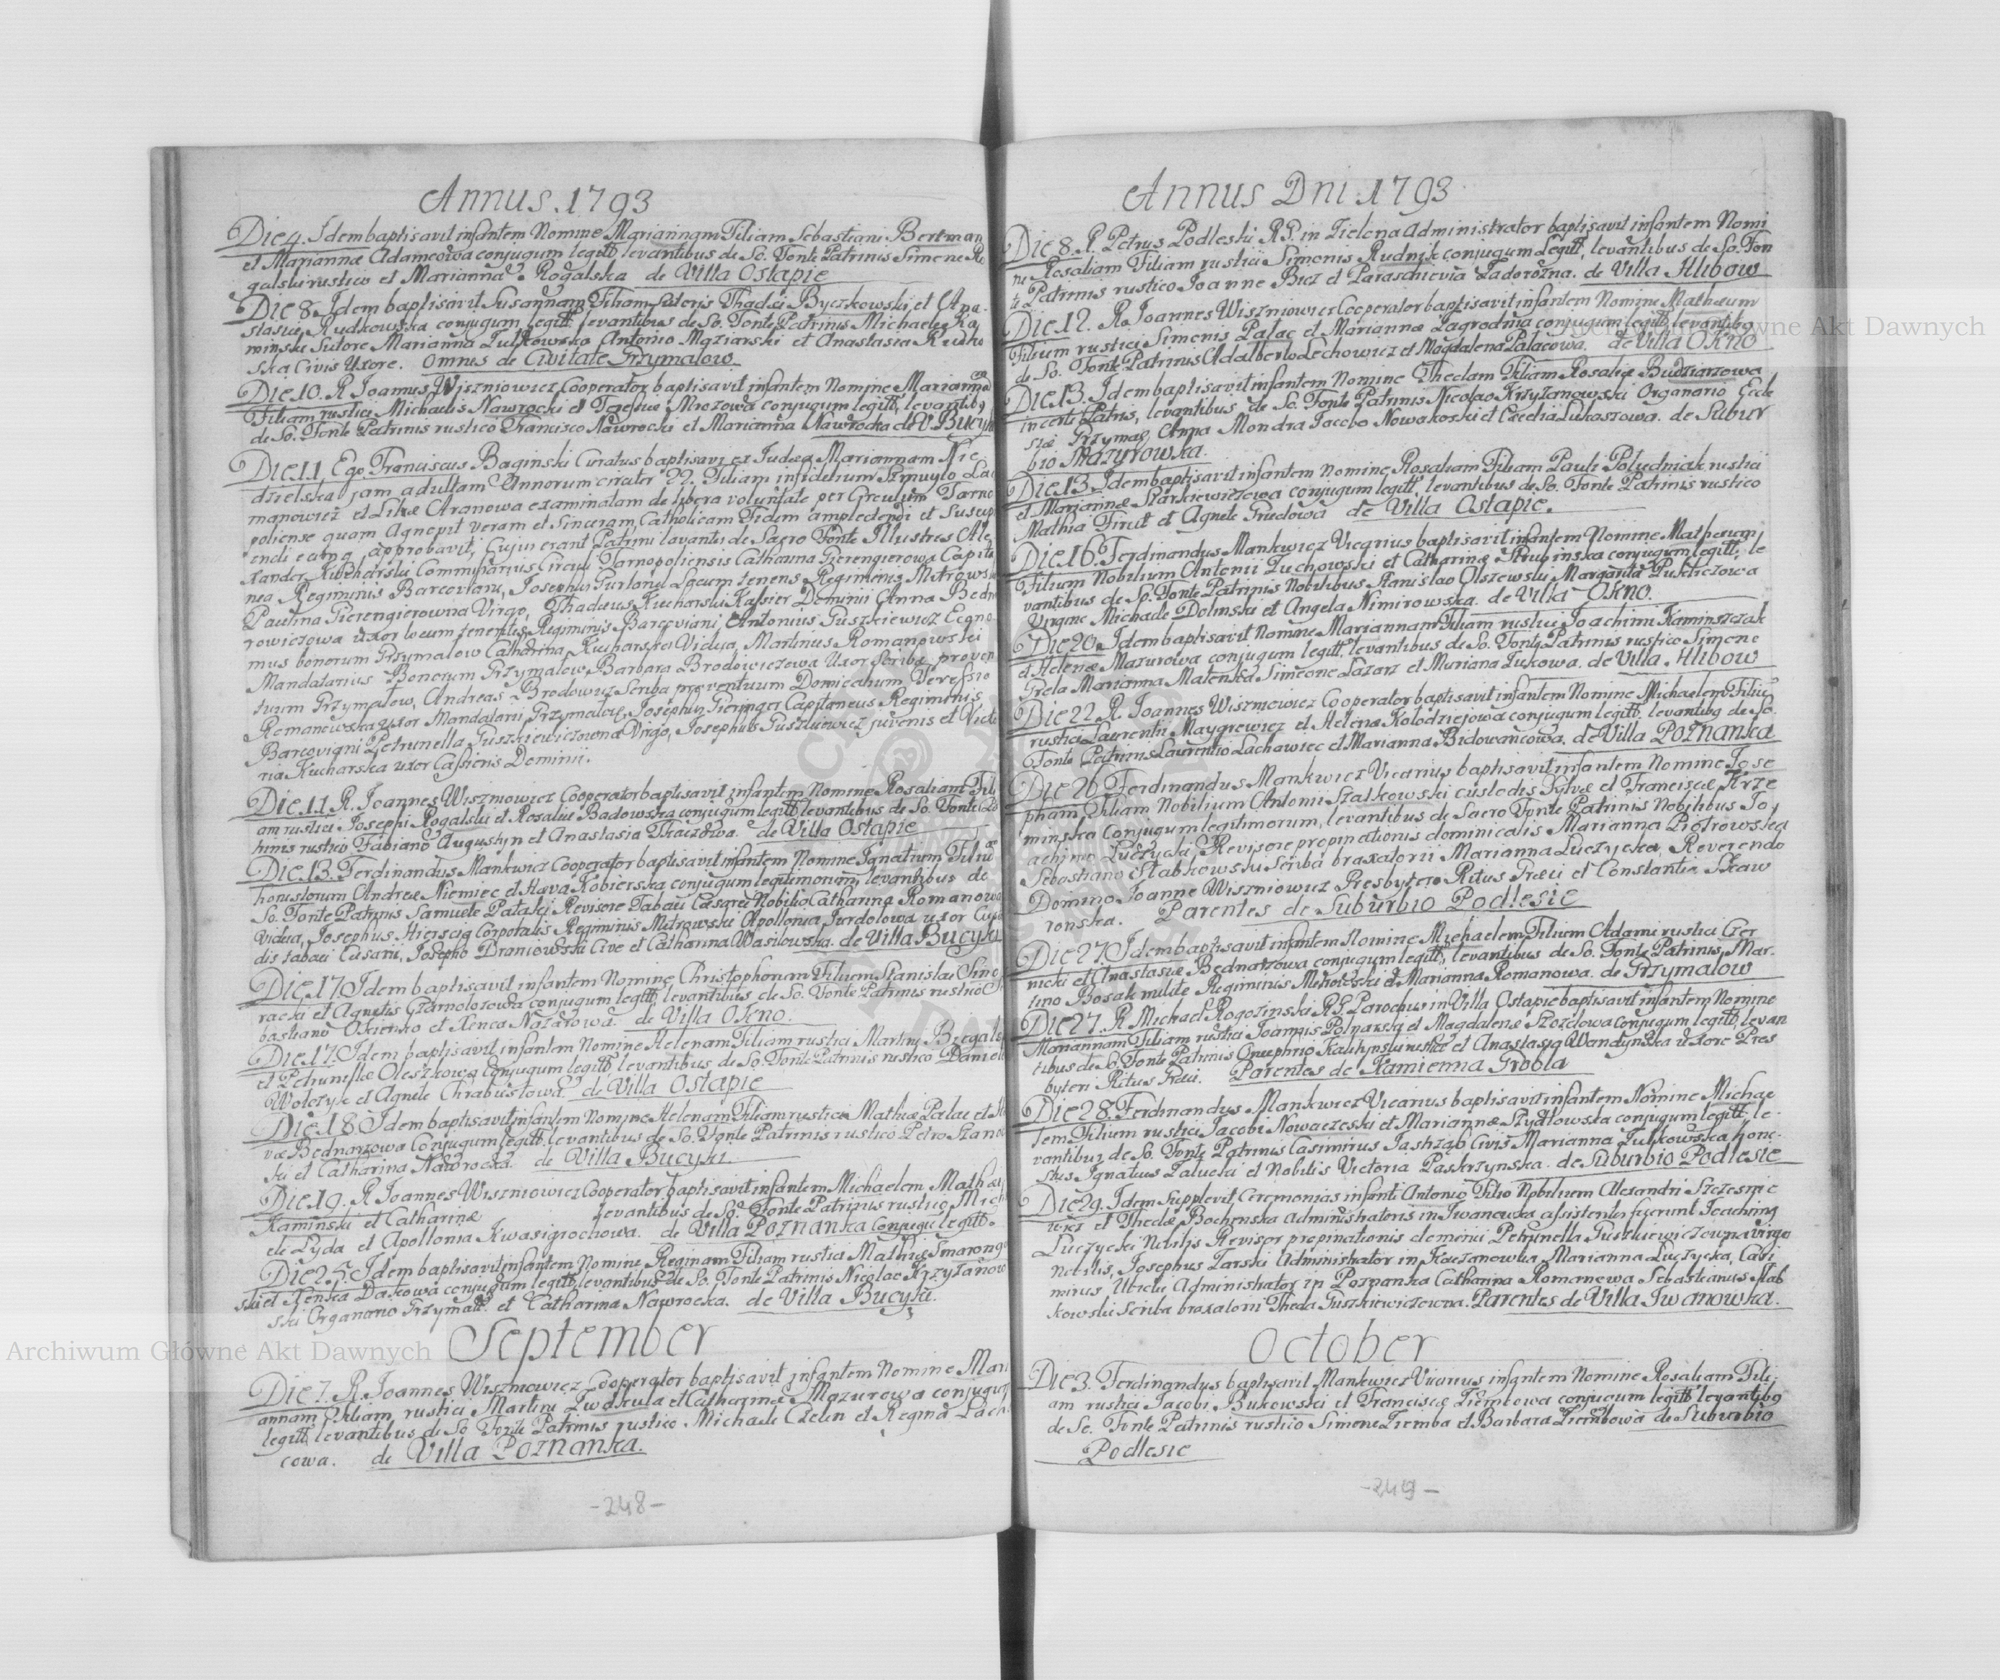 Annus 1793
Die 4. Idem baptisavit infantem Nomine Mariannam Filiam Sebastiani Bertman
et Mariannæ Adamcowa conjugum legitt, levantibus de So. Fonte Patrinis Simone Ro
galski rustico et Marianna Rogalska de Villa Ostapie
Die 8. Idem baptisavit Susannam Filiam Sutoris Thadæi Byczkowski et Ana-
stasiæ Rudkowska conjugum legitt levantibus de So. Fonte Patrinis Michaele Ka
minski Sutore Marianna Antonio Maziarski et Anastasia Rudko
ska Civis Uxore. Omnes de Civitate Grzymalow.
Die 10. R. Joannes Wiszniowicz Cooperator baptisavit infantem Nomine Mariannã
Filiam rustici Michaelis Nawrocki et Teresiæ Mrozowa conjugum legitt, levantibg
de So. Fonte Patrinis rustico Francisco Nawrocki et Marianna Nawrocka de V. Bucyki
Die 11. Ego Franciscus Baginski Curatus baptisavi ex Judæa Mariannam Nie
dzielska jam adultam Annorum circiter 22. Filiam infidelium Szmuylo La
manowicz et Libæ Aranowa examinatam de libera voluntate per Circulum Tarno
poliense quam agnovit veram et Sinceram Catholicam Fidem amplectendi et Suscip
endi eamq approbavit, Cujus erant Patrini levantes de Sacro Fonte Illustres Ale
xander Kucharski Communarius Circuli Tarnopoliensis Catharina Gierengierowa Capita
nea Regiminis Barcoviani, Josephus Locum tenens Regiminis Mitrowski
Paulina Gierengierowna Virgo, Thadeus Kucharski Kassier Dominii Anna Bedn
rowiczowa uxor locum tenentis Regiminis Barcoviani, Antonius Guszkiewicz Econo
mus bonorum Grzymalow Catharina Kucharska Vidua, Martinus Romanowski
Mandatarius Bonorum Grzymalow, Barbara Brodowiczowa Uxor Scribæ proven
tuum Grzymalow, Andreas Brodowicz Scriba proventuum Dominicalium,
Romanowska uxor Mandatarii Grzymalow, Josephus Gieringer Capitaneus Regiminis
Barcoviani Petrunella Guszkiewiczowna Virgo, Josephus Guszkiewicz juvenis et Victo
ria Kucharska uxor Cassieris Dominii.
Die 11. R. Joannes Wiszniowicz Cooperator baptisavit infantem Nomine Rosaliam Fili
am rustici Josephi Rogalski et Rosaliæ Badowska conjugum legitt levantibus de So. Fonte Pa
trinis rustico Fabiano Augustyn et Anastasia Tkaczowa. de Villa Ostapie
Die 13. Ferdinandus Mankwicz Cooperator baptisavit infantem Nomine Ignatium Filiũ
honestorum Andreæ Niemiec et Hava Kobierska conjugum legitimorum, levantibus de
So. Fonte Patrinis Samuele Pataki Revisore Tabaci Cæsareo Nobilis Catharina Romanowa
Vidua, Josephus Corporalis Regiminis Mitrowski Apollonia Jurdolowa uxor Custo
dis tabaci Cæsarei, Josepho Draniowski Cive et Catharina Wasilowska. de Villa Bucyki
Die 17. Idem baptisavit infantem Nomine Christophorum Filium Stanislai
racki et Agnetis conjugum legitt, levantibus de So. Fonte Patrinis rustico Se
bastiano Okienko et Xenca Nazarowa. de Villa Okno.
Die 17. Idem baptisavit infantem Nomine Helenam Filiam rustici Martini
et Petrunellæ Oleszkowa conjugum legitt levantibus de So. Fonte Patrinis rustico Daniele
Wolczyk et Agnete Chrabustowa. de Villa Ostapie
Die 18. Idem baptisavit infantem Nomine Helenam Filiam rustici Mathiæ Palac et
væ Bednarzowa Conjugum legitt levantibus de So. Fonte Patrinis rustico Petro
ski et Catharina Nawrocka. de Villa Bucyki.
Die 19. R. Joannes Wiszniowicz Cooperator baptisavit infantem Michaelem Mathæi
Kaminski et Catharinæ levantibus de So. Fonte Patrinis rustico Mich
ele Lyda et Apollonia Kwasigrochowa. de Villa Poznanka Conjugũ legitt.
Die 25. Idem baptisavit infantem Nomine Reginam Filiam rustici Mathiæ
ski et Xenka Dackowa conjugum legitt, levantibus de So. Fonte Patrinis Nicolao Krzyzanow
ski Organario Grzymall. et Catharina Nawrocka. de Villa Bucyki.
September
Die 7. R. Joannes Wiszniowicz Cooperator baptisavit infantem Nomine Mari
annam Filiam rustici Martini et Catharinæ Mazurowa conjugum
legitt levantibus de So Fonte Patrinis rustico Michaele Czelen et Regina Lach
cowa. de Villa Poznanka.
-248-
Annus Dni 1793
Die 8. R. Petrus Podleski R.R. in Zielona Administrator baptisavit infantem Nomi
ne Rosaliam Filiam rustici Simonis Rudnik conjugum legitt, levantibus de So. Fon
te Patrinis rustico Joanne Biez et Paraschievia Zadorozna. de Villa Hlibow
Die 12. R. Joannes Wiszniowicz Cooperator baptisavit infantem Nomine Mathæum
Filium rustici Simonis Palac et Mariannæ Zagrodna conjugum legitt levantibg
de So. Fonte Patrinis Adalberto Lechowicz et Magdalena Palacowa. de Villa Okno
Die 13. Idem baptisavit infantem Nomine Theclam Filiam Rosaliæ Budziarzowa
incerti Patris, levantibus de So. Fonte Patrinis Nicolao Krzyzanowski Organario Eccle
siæ Grzymal, Anna Mondra Jacobo Nowakoski et Cæcilia Lukaszowa. de Subur
bio Mazyrowska.
Die 13. Idem baptisavit infantem Nomine Rosaliam Filiam Pauli Poludniak rustici
et Mariannæ Starkiewiczowa conjugum legitt, levantibus de So. Fonte Patrinis rustico
Mathia Firut et Agnete Grudowa de Villa Ostapie.
Die 16. Ferdinandus Mankwicz Vicarius baptisavit infantem Nomine Mathæum
Filium Nobilium Antonii Zuchowski et Catharinæ conjugum legitt, le
vantibus de So. Fonte Patrinis Nobilibus Stanislao Olszewski Margarita Pukliczowa
Virgine Michaele Dolinski et Angela Nimirowska. de Villa Okno.
Die 20. Idem baptisavit Nomine Mariannam Filiam rustici Joachimi Kaminszczak
et Helenæ Mazurowa conjugum legitt, levantibus de So. Fonte Patrinis rustico Simone
Grela Marianna Matenka Simeone Lazarz et Mariana Zukowa. de Villa Hlibow
Die 22. R. Joannes Wiszniowicz Cooperator baptisavit infantem Nomine Michaelem Filiũ
rustici Laurentii Maygrewicz et Helena Kolodziejowa conjugum legitt, levantibg de So.
Fonte Patrinis Laurentio Lachowiec et Marianna Bidowancowa. de Villa Poznanka
Die 26. Ferdinandus Mankwicz Vicarius baptisavit infantem Nomine Jose
pham Filiam Nobilium Antonii Szalkowski custodis Sylvæ et Franciscæ Krze
minska Conjugum legitimorum, levantibus de Sacro Fonte Patrinis Nobilibus Jo
achimo Luczycki, Revisore propinationis dominicalis Marianna Piotrowska
Sebastiano Slabkowski Scriba braxatorii Marianna Luczycka, Reverendo
Domino Joanne Wiszniowicz Presbytero Ritus Græci et Constantia Slaw
ronska. Parentes de Suburbio Podlesie
Die 27. Idem baptisavit infantem Nomine Michaelem Filium Adami rustici Czer
nicki et Anastasiæ Bednarzowa conjugum legitt, levantibus de So. Fonte Patrinis, Mar-
tino Bosak milite Regiminis Mitrowski et Marianna Romanowa. de Grzymalow
Die 27. R. Michael Rogozinski R.G. Parochus in Villa Ostapie baptisavit infantem Nomine
Mariannam Filiam rustici Joannis Polnarski et Magdalenæ Szozdowa conjugum legitt, levan
tibus de So. Fonte Patrinis Onuphrio rustico et Anastasia Wandynska uxore Pres
byteri Ritus Græci. Parentes de Kamienna Grobla
Die 28. Ferdinandus Mankwicz Vicarius baptisavit infantem Nomine Michae
lem Filium rustici Jacobi Nowaczeski et Mariannæ Szydlowska conjugum legitt, le-
vantibus de So. Fonte Patrinis Casimirus Jastrząb Civis Marianna Zulkowska hone-
stus Ignatius Zalucki et Nobilis Victoria Paskrzynska. de Suburbio Podlesie
Die 29. Idem Supplevit Ceremonias infanti Antonio Filio Nobilium Alexandri Szczesnie
wicz et Theclæ Bochenska Administratoris in Iwanowka assistentes fuerunt Joachimg
Luczycki Nobilis Revisor propinationis dominii Petrunella Guszkiewiczowna virgo
Nobilis, Josephus Zarski Administrator in Kaczanowka, Marianna Luczycka, Casi
mirus Administrator in Poznanka Catharina Romanowa Sebastianus Slab
kowski Scriba braxatorii Thecla Guszkiewiczowna. Parentes de Villa Iwanowka.
October
Die 3. Ferdinandus baptisavit Mankwicz Vicarius infantem Nomine Rosaliam Fili
am rustici Jacobi Bukowski et Franciscæ Ziembowa conjugum legitt levantibg
de So. Fonte Patrinis rustico Simone Ziemba et Barbara Ziembowa de Suburbio
Podlesie
-249-
Archiwum Główne Akt Dawnych
Archiwum Główne Akt Dawnych